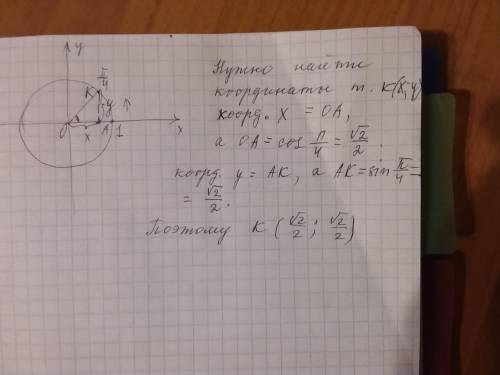 y
π/4
K
y
O
x
A
1
x
Нужно найти
координаты т. K(x,y)
коорд. x = OA,
а OA = cos π/4 = √2/2.
коорд. y = AK, а AK = sin π/4 =
= √2/2.
Поэтому K (√2/2; √2/2)